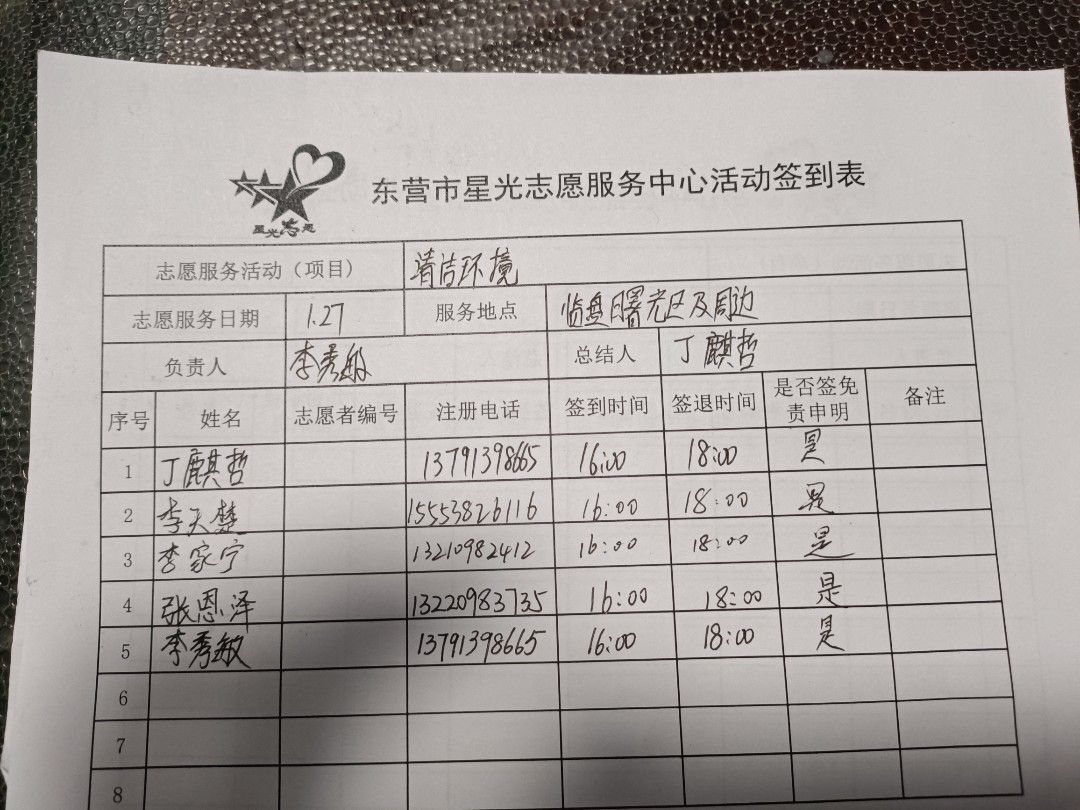 星光志愿
东营市星光志愿服务中心活动签到表
志愿服务活动（项目） 清洁环境
志愿服务日期 1.27 服务地点 临盘曙光区及周边
负责人 李秀敏 总结人 丁麒哲
序号 姓名 志愿者编号 注册电话 签到时间 签退时间 是否签免责申明 备注
1 丁麒哲 13791398665 16:00 18:00 是
2 李天楚 15553826116 16:00 18:00 是
3 李家宁 13210982412 16:00 18:00 是
4 张恩泽 13220983735 16:00 18:00 是
5 李秀敏 13791398665 16:00 18:00 是
6
7
8